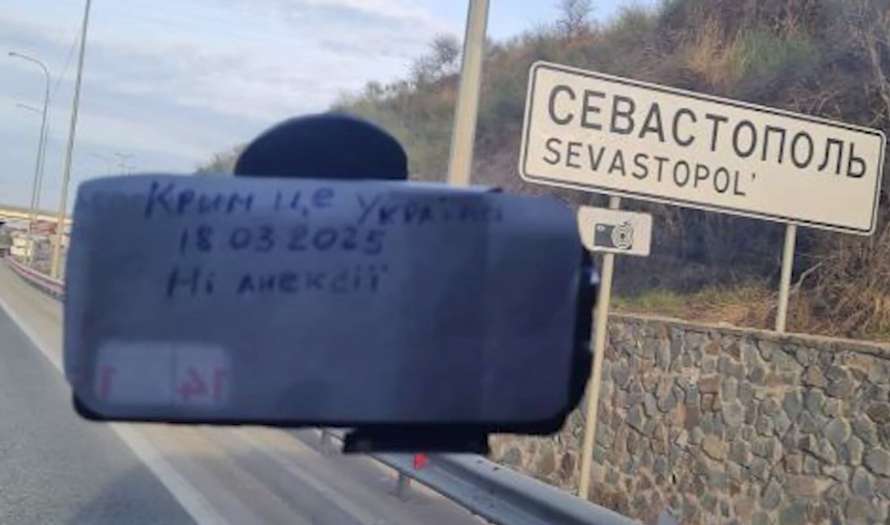 Крим це Україна
18 03 2025
Ні анексії
14
СЕВАСТОПОЛЬ
SEVASTOPOL'